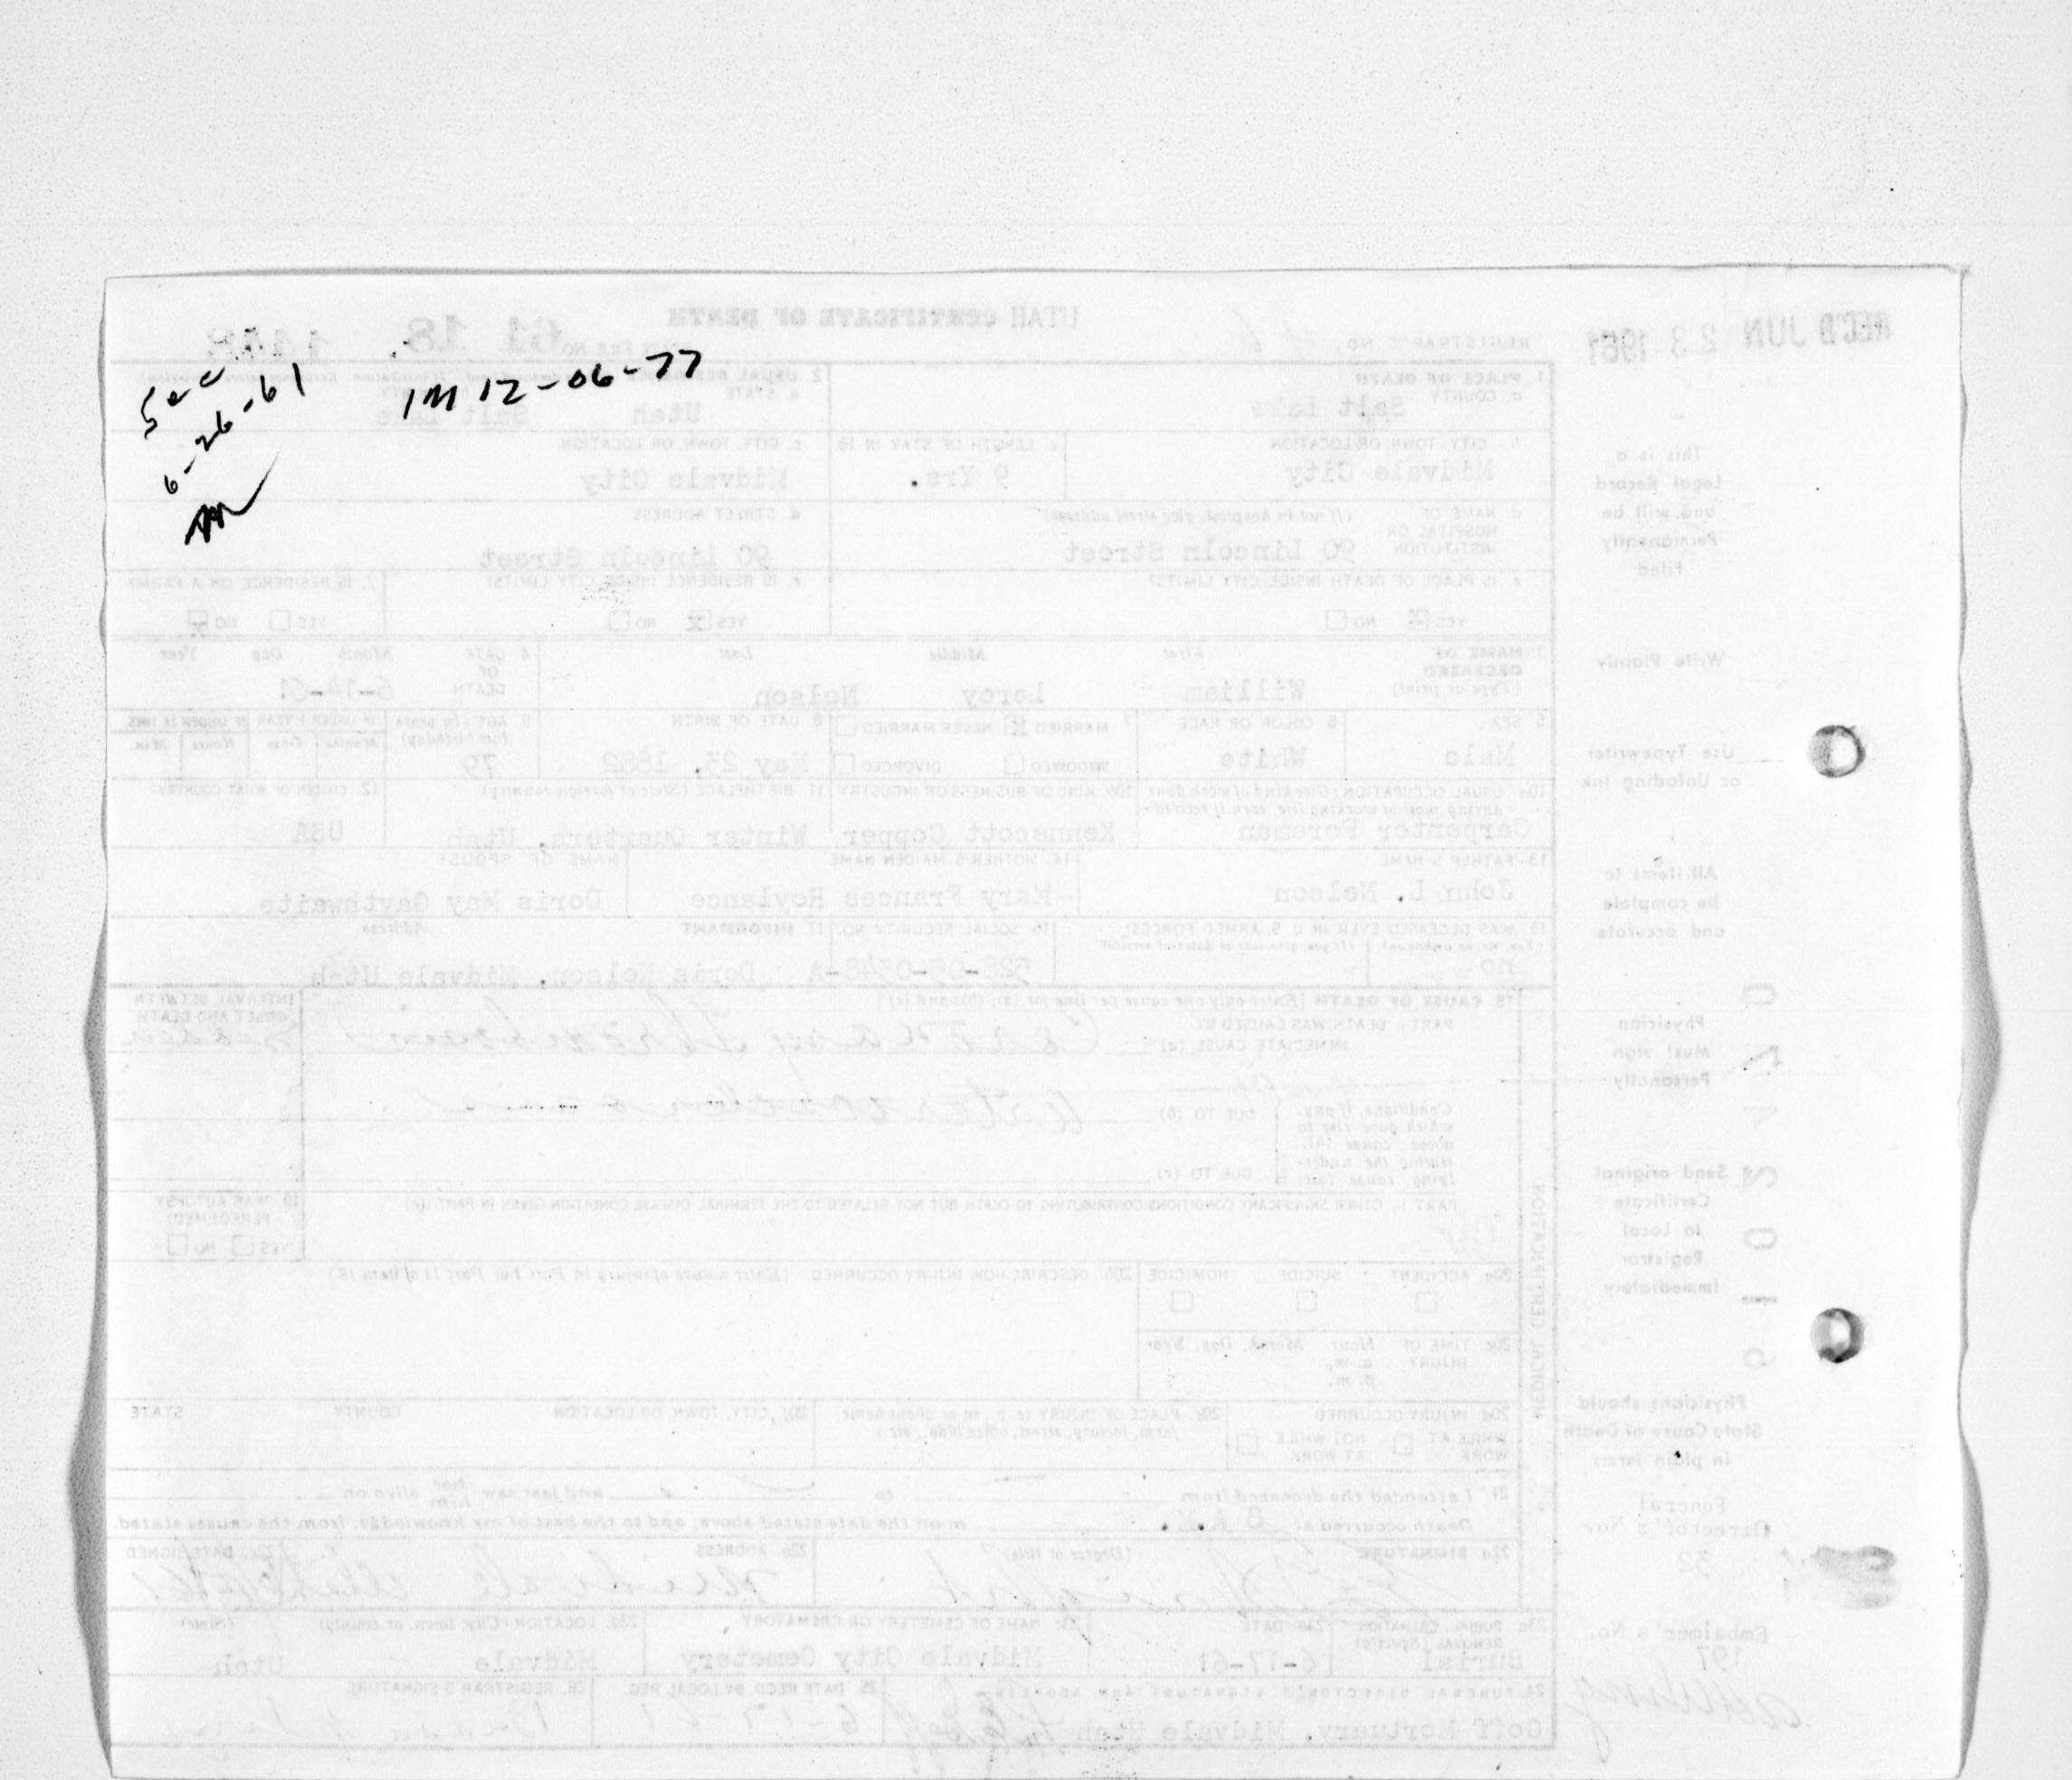 See
6-26-61
IM 12-06-77
REC'D JUN 23 1961
UTAH CERTIFICATE OF DEATH
REGISTRAR'S NO.
STATE FILE NO. 61 18
This is a
Legal Record
and will be
Permanently
Filed
Write Plainly
Use Typewriter
or Unfading Ink
All items to
be complete
and accurate
Physician
Must sign
Personally
Send original
Certificate
to Local
Registrar
Immediately
Physicians should
State Cause of Death
in plain terms
Funeral
Director's No.
32
Embalmer's No.
197
1. PLACE OF DEATH
a. COUNTY
Salt Lake
2. USUAL RESIDENCE
a. STATE
Utah
Salt Lake
b. CITY, TOWN OR LOCATION
Midvale City
c. LENGTH OF STAY IN 1b
9 Yrs.
c. CITY, TOWN OR LOCATION
Midvale City
d. NAME OF HOSPITAL OR INSTITUTION (If not in hospital, give street address)
90 Lincoln Street
d. STREET ADDRESS
90 Lincoln Street
e. IS PLACE OF DEATH INSIDE CITY LIMITS?
YES X NO
e. IS RESIDENCE INSIDE CITY LIMITS?
YES X NO
f. IS RESIDENCE ON A FARM?
YES NO X
3. NAME OF DECEASED (Type or print)
First Middle Last
William Leroy Nelson
4. DATE OF DEATH
Month Day Year
6-14-61
5. SEX
Male
6. COLOR OR RACE
White
7. MARRIED X NEVER MARRIED
WIDOWED DIVORCED
8. DATE OF BIRTH
May 23, 1882
9. AGE (In years last birthday)
79
IF UNDER 1 YEAR IF UNDER 24 HRS.
Months Days Hours Min.
10a. USUAL OCCUPATION (Give kind of work done during most of working life, even if retired)
Carpenter Foreman
10b. KIND OF BUSINESS OR INDUSTRY
Kennecott Copper
11. BIRTHPLACE (State or foreign country)
Winter Quarters, Utah
12. CITIZEN OF WHAT COUNTRY?
USA
13. FATHER'S NAME
John L. Nelson
14. MOTHER'S MAIDEN NAME
Mary Frances Roylance
NAME OF SPOUSE
Doris May Gaythwaite
15. WAS DECEASED EVER IN U.S. ARMED FORCES?
(Yes, no, or unknown) (If yes, give war or dates of service)
no
16. SOCIAL SECURITY NO.
528-05-0348-A
17. INFORMANT Address
Doris Nelson, Midvale Utah
18. CAUSE OF DEATH [Enter only one cause per line for (a), (b), and (c)]
PART I. DEATH WAS CAUSED BY:
IMMEDIATE CAUSE (a)
Coronary thrombosis
INTERVAL BETWEEN ONSET AND DEATH
Conditions, if any, which gave rise to above cause (a), stating the underlying cause last.
DUE TO (b)
DUE TO (c)
PART II. OTHER SIGNIFICANT CONDITIONS CONTRIBUTING TO DEATH BUT NOT RELATED TO THE TERMINAL DISEASE CONDITION GIVEN IN PART I(a)
19. WAS AUTOPSY PERFORMED?
YES NO
MEDICAL CERTIFICATION
20a. ACCIDENT SUICIDE HOMICIDE
20b. DESCRIBE HOW INJURY OCCURRED. (Enter nature of injury in Part I or Part II of item 18.)
20c. TIME OF INJURY
Hour Month, Day, Year
a. m.
p. m.
20d. INJURY OCCURRED
WHILE AT WORK NOT WHILE AT WORK
20e. PLACE OF INJURY (e.g., in or about home, farm, factory, street, office bldg., etc.)
20f. CITY, TOWN, OR LOCATION COUNTY STATE
21. I attended the deceased from to and last saw her him alive on
Death occurred at 8 A.M. m on the date stated above, and to the best of my knowledge, from the causes stated.
22a. SIGNATURE (Degree or title)
22b. ADDRESS
Midvale Utah
22c. DATE SIGNED
23a. BURIAL, CREMATION, REMOVAL (Specify)
Burial
23b. DATE
6-17-61
23c. NAME OF CEMETERY OR CREMATORY
Midvale City Cemetery
23d. LOCATION (City, town, or county) (State)
Midvale Utah
24. FUNERAL DIRECTOR'S SIGNATURE AND ADDRESS
Goff Mortuary, Midvale Utah
25. DATE RECD. BY LOCAL REG.
6-17-61
26. REGISTRAR'S SIGNATURE